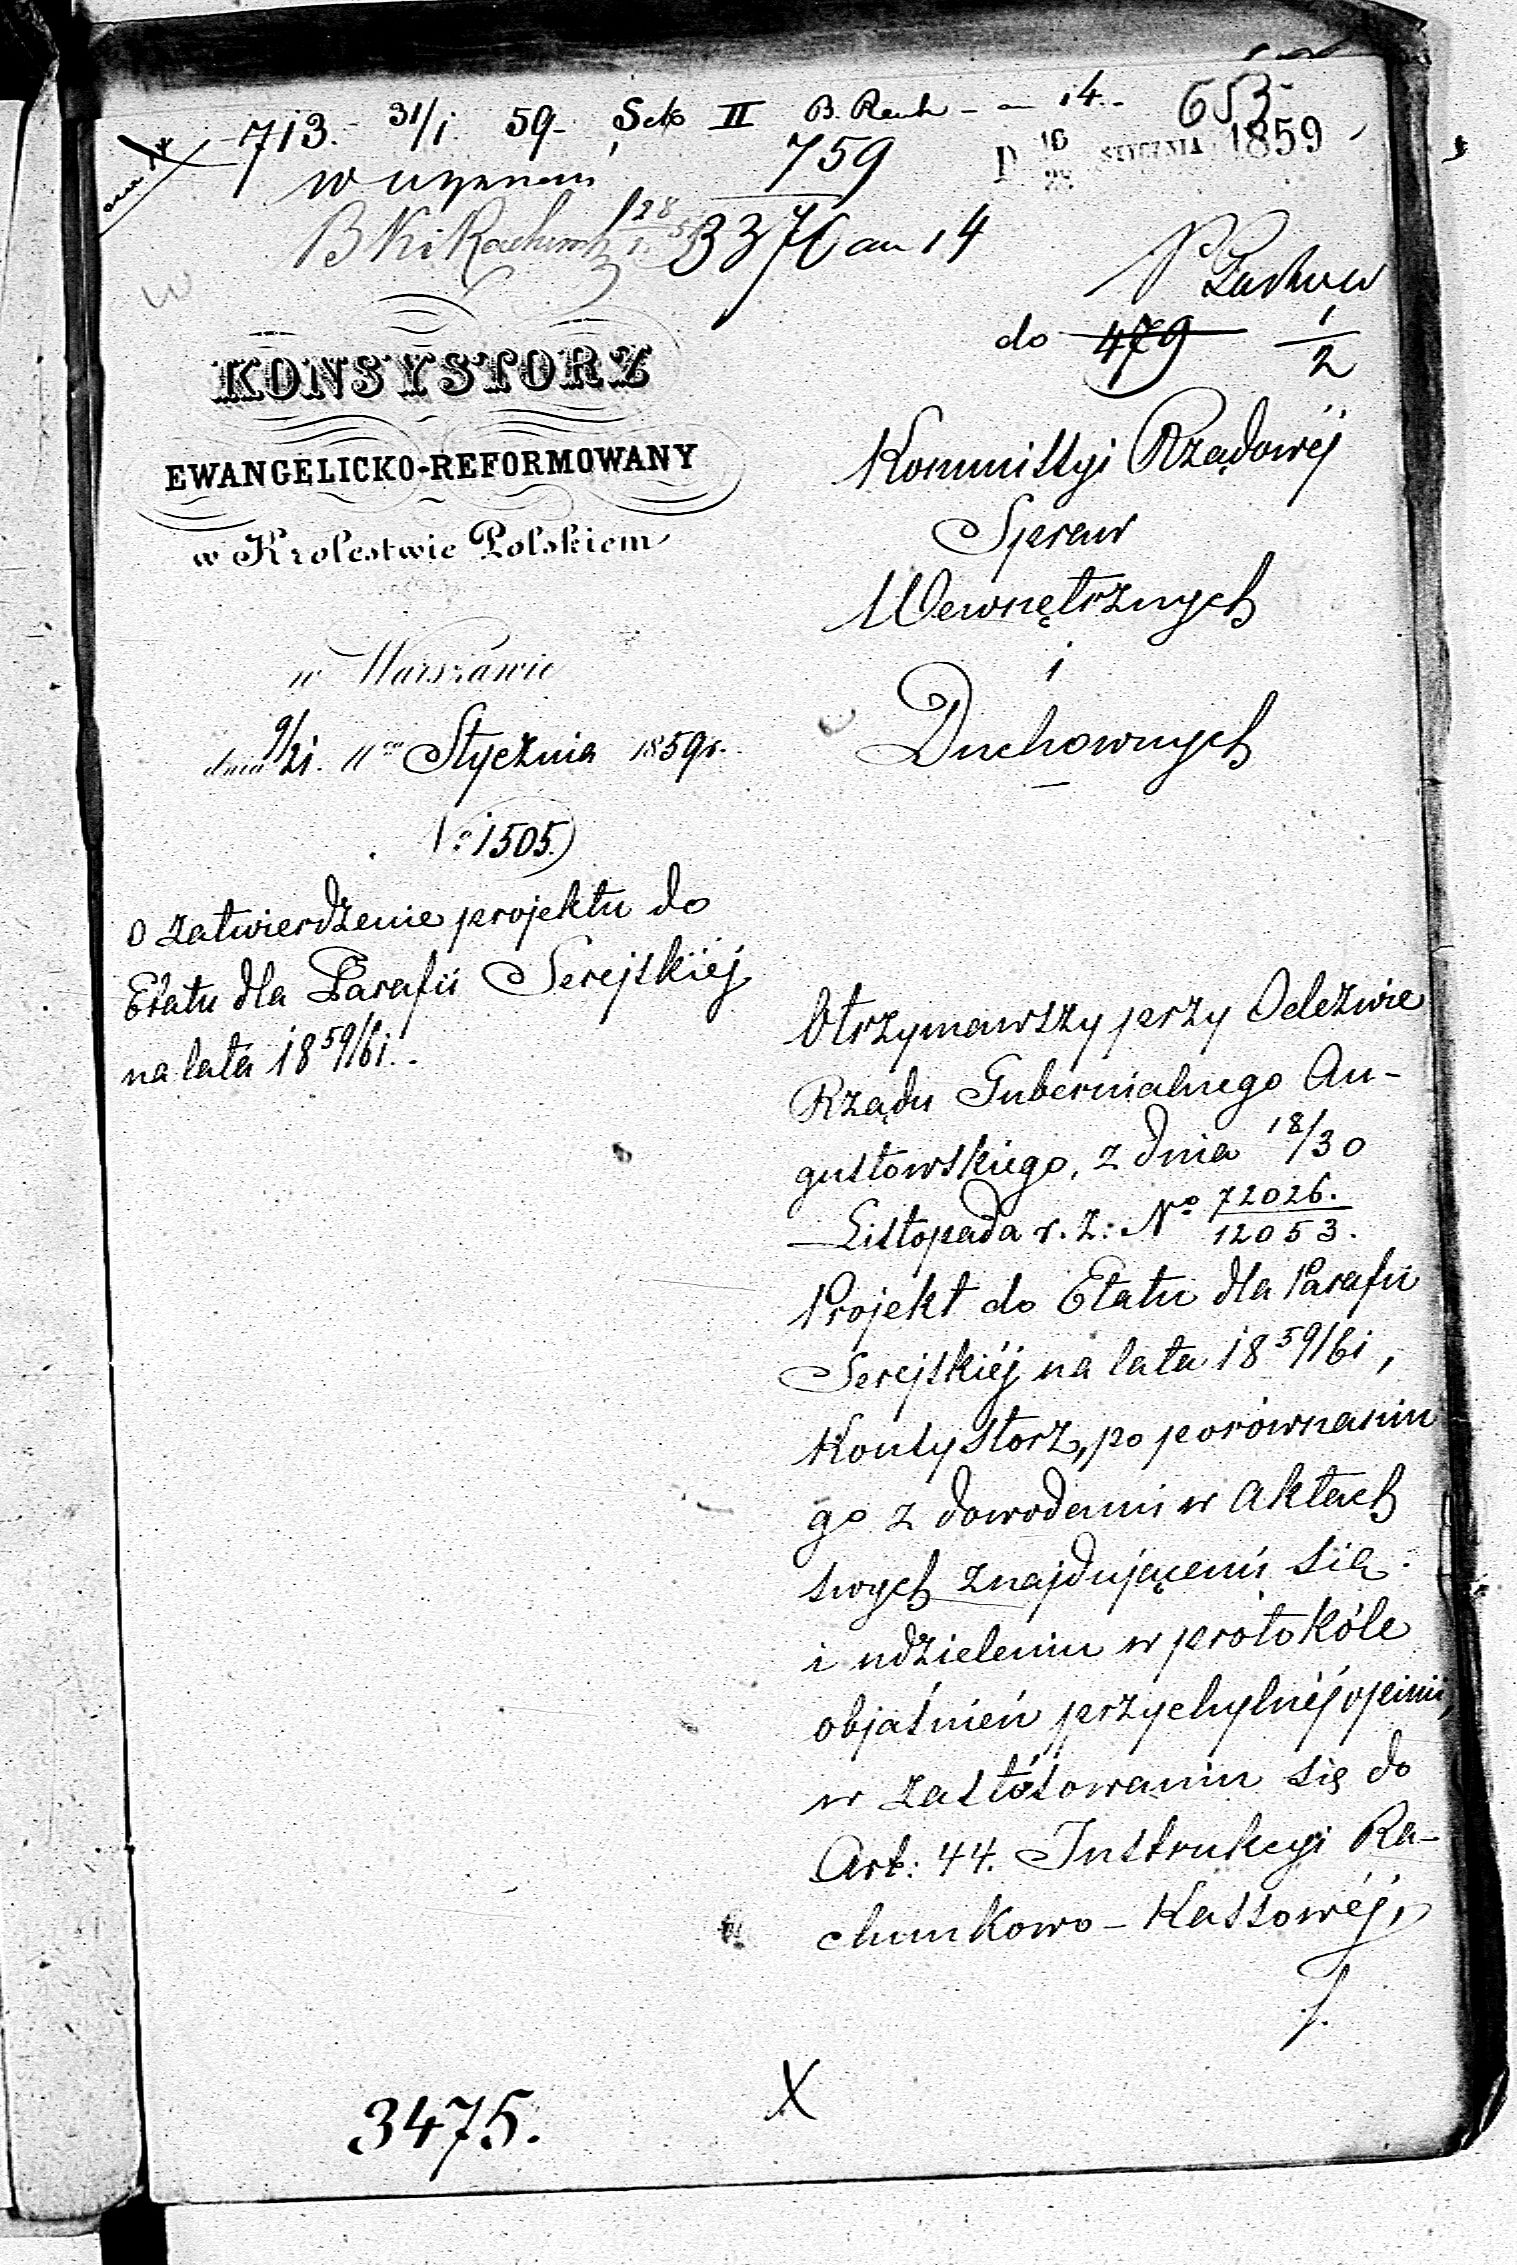 713. 31/1. 59. Sek II B. Rach — 14.
653
759
D 16/28 STYCZNIA 1859
3370 an 14
KONSYSTORZ
EWANGELICKO-REFORMOWANY
w Krolestwie Polskiem
w Warszawie
dnia 9/21. Stycznia 1859 r.
No 1505.
O zatwierdzenie projektu do
Etatu dla Parafii Serejskiéj
na lata 18 59/61.
do 479 1/2
Kommissyi Rządowéj
Spraw
Wewnętrznych
i
Duchownych
Otrzymawszy przy Odezwie
Rządu Gubernialnego Au-
gustowskiego, z dnia 18/30
Listopada r. z: No 72026./12053.
Projekt do Etatu dla Parafii
Serejskiéj na lata 18 59/61,
Konsystorz, po porównaniu
go z dowodami w aktach
swych znajdującemi się
i udzieleniu w protokóle
objaśnień przychylnéj opinii,
w zastósowaniu się do
Art: 44. Instrukcyi Ra-
chunkowo-Kassowéj,
3475.
X